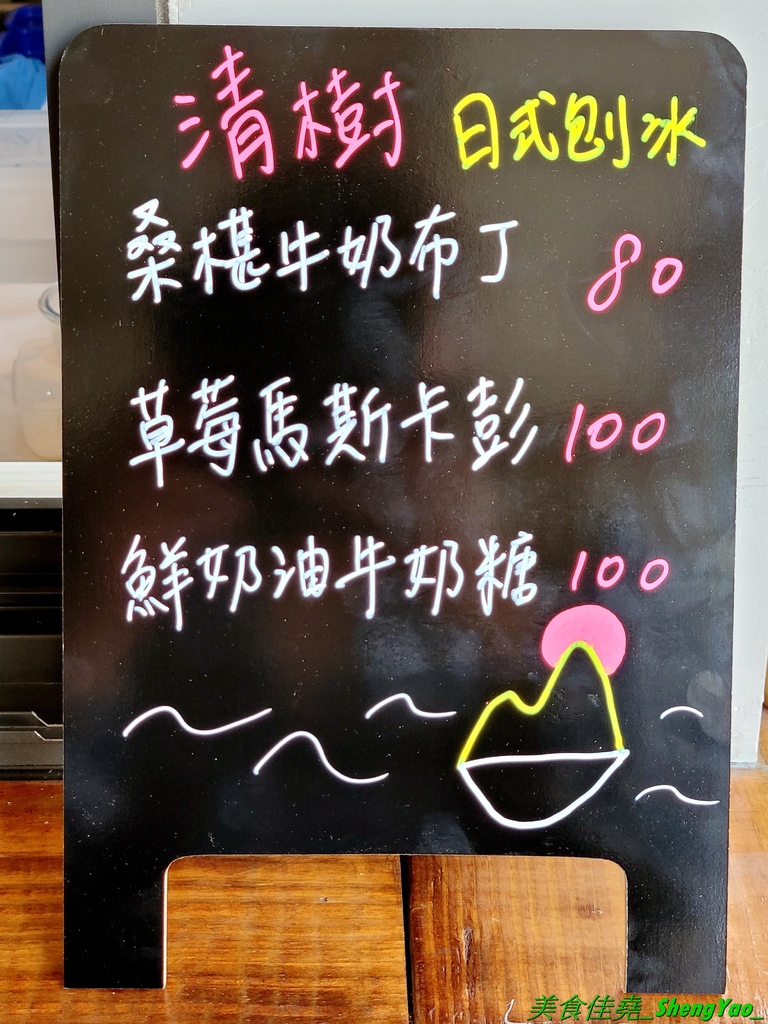 清樹 日式刨冰
桑椹牛奶布丁 80
草莓馬斯卡彭 100
鮮奶油牛奶糖 100
美食佳堯_ShengYao_